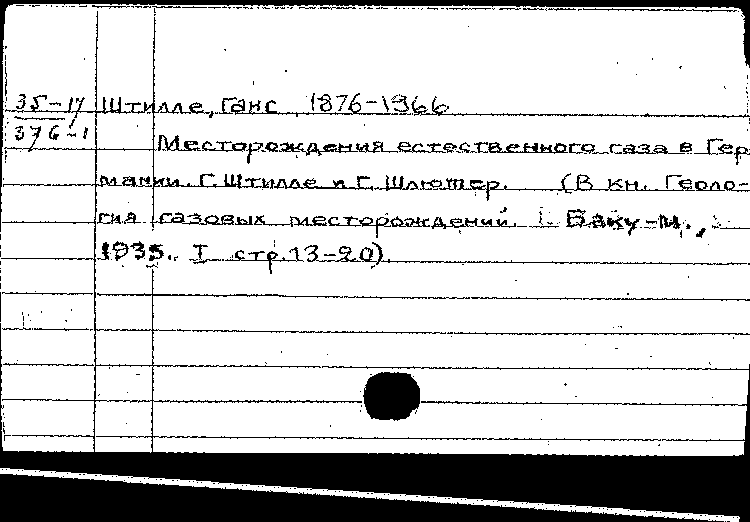 35-17 Штилле, Ганс 1876-1966
376-1 Месторождения естественного газа в Гер
мании. Г. Штилле и Г. Шлютер. (В кн. Геоло-
гия газовых месторождений. Баку-М.,
1935. I стр. 13-20)